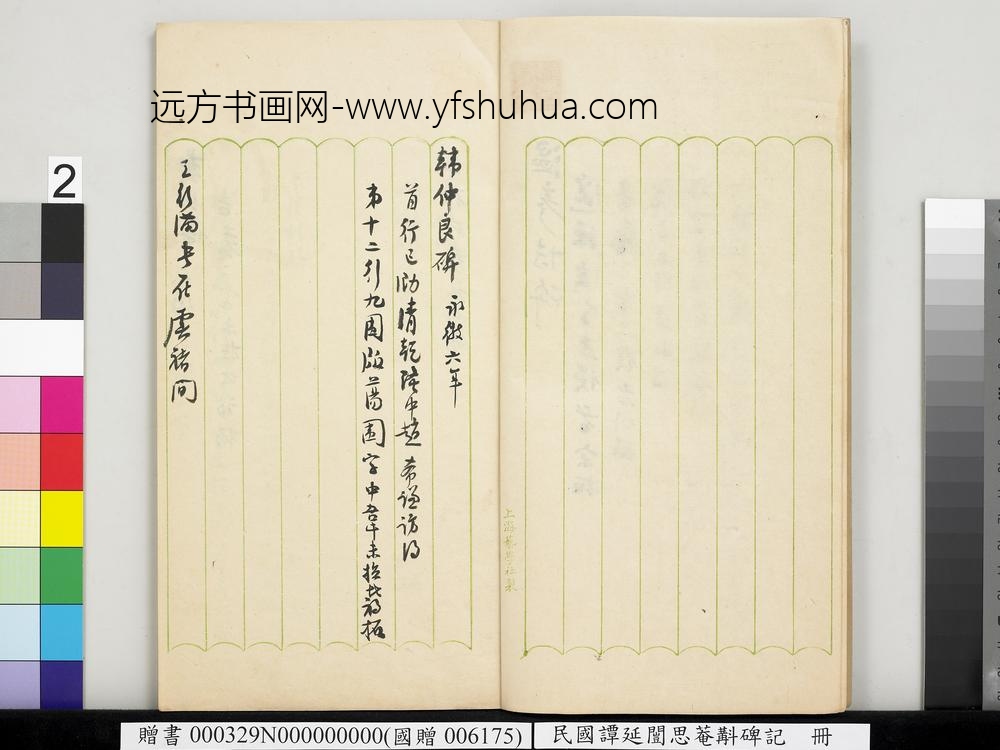 远方书画网-www.yfshuhua.com
2
韩仲良碑 永徽六年
首行已泐清乾隆中赵希谦访得
弟十二行九图版荡图字中
初拓
王行满书在虞褚间
上海艺学社製
贈書 000329N000000000(國贈 006175)
民國譚延闓思菴斠碑記 冊